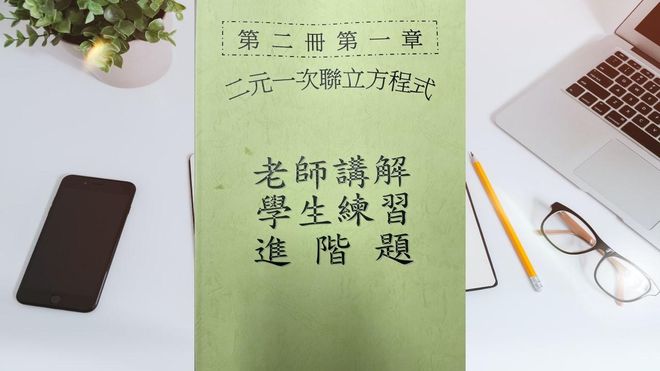 第二冊第一章
二元一次聯立方程式
老師講解
學生練習
進階題